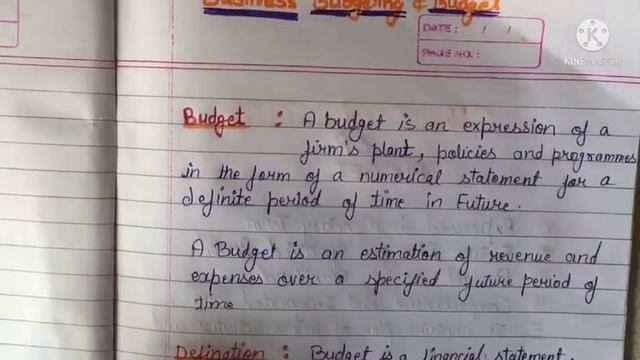 Business Budgeting & Budget
DATE: / /
PAGE NO.:
KINEMASTER
Budget : A budget is an expression of a
firm's plant, policies and programmes
in the form of a numerical statement for a
definite period of time in Future.
A Budget is an estimation of revenue and
expenses over a specified future period of
time
Defination : Budget is a financial statement,